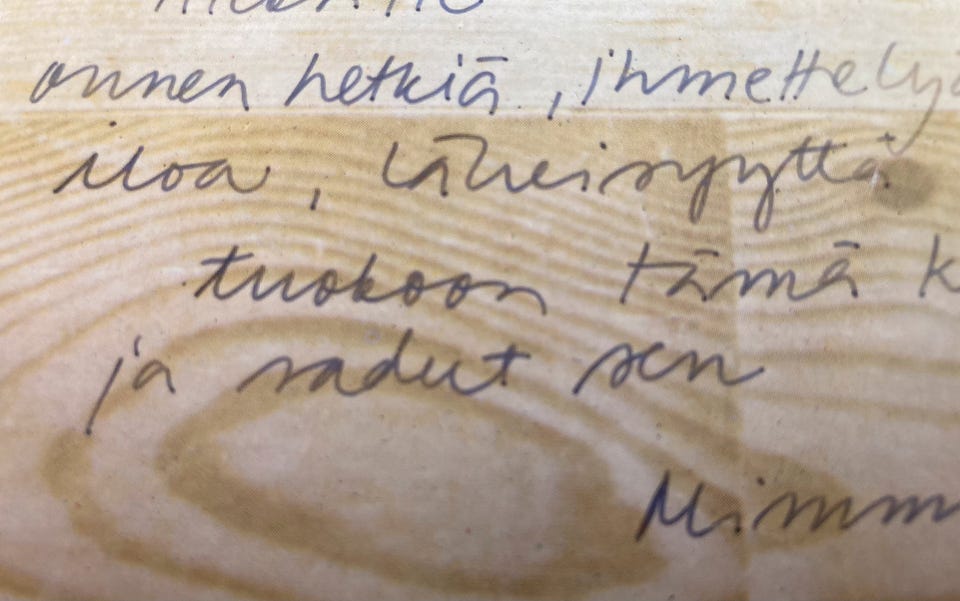 onnen hetkiä, ihmettelyä
iloa, läheisyyttä
tuokoon tämä
ja sadut sen